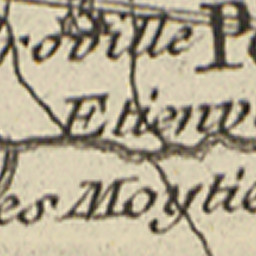 oville
Etienv
es Moytie